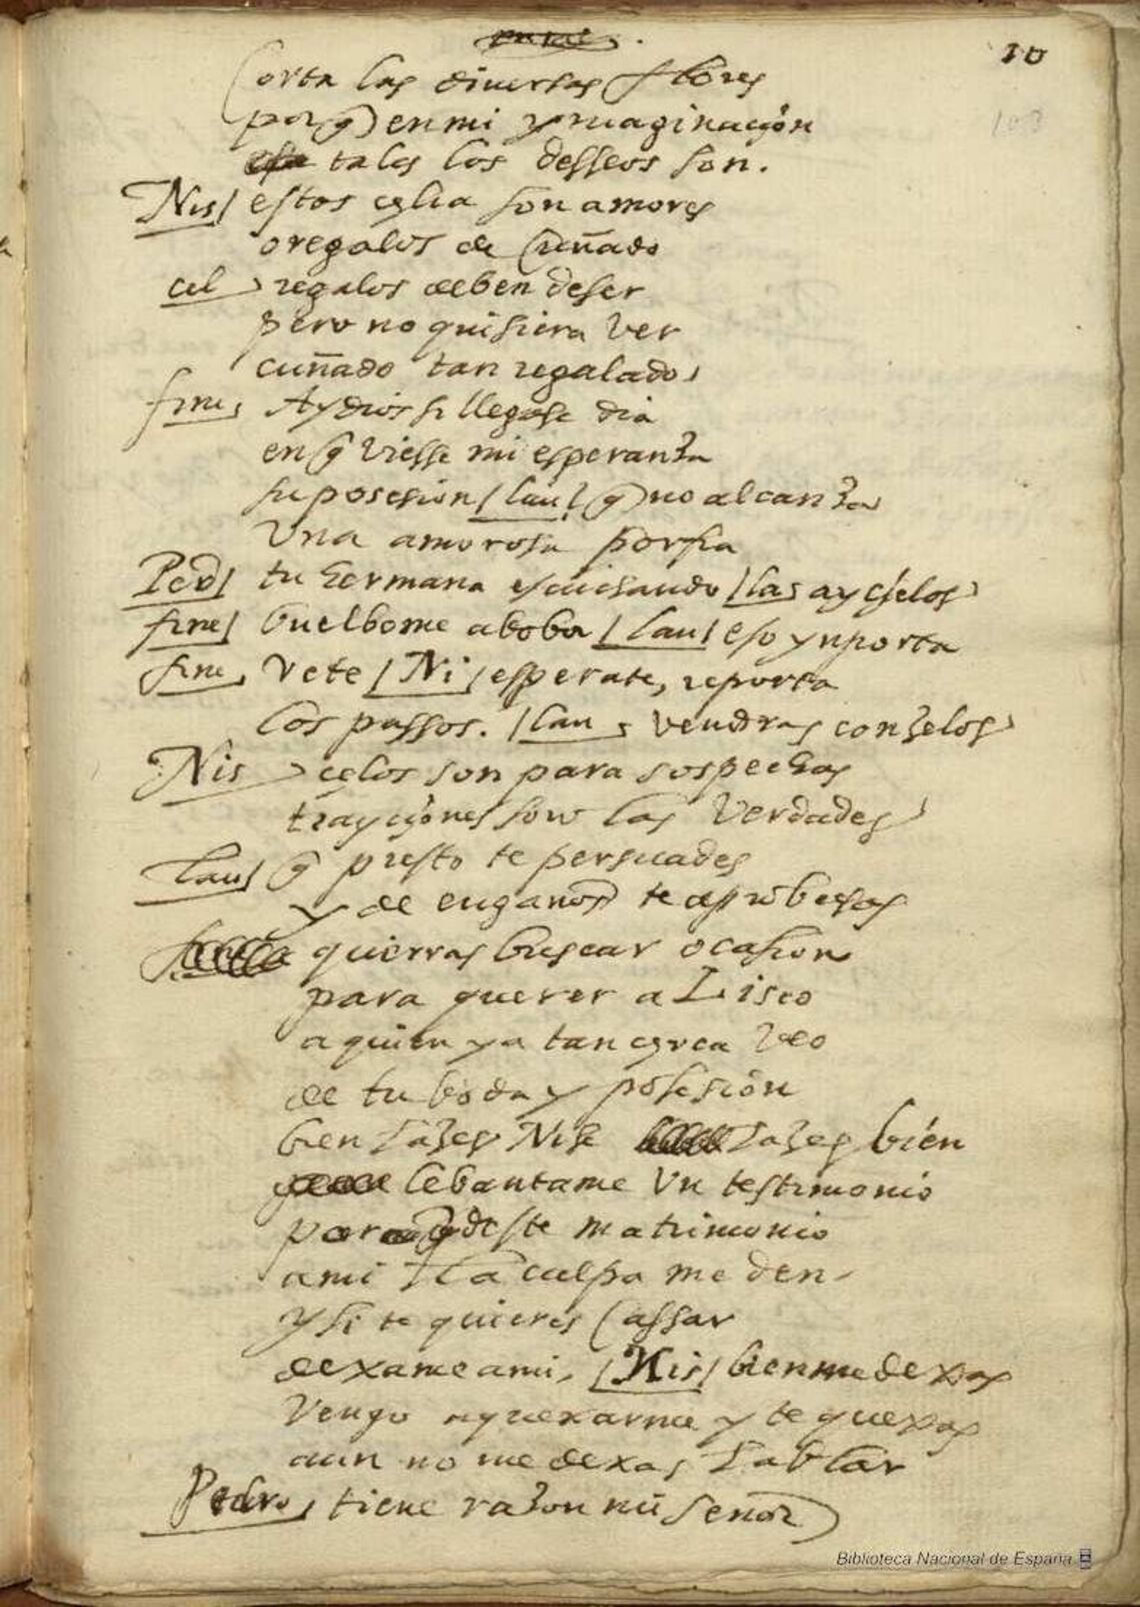 10
103
Corta las diuersas flores
porq̃ en mi ymaginaçion
tales los desseos son.
Nis/ estos çelia son amores
o regalos de Cuñado
cel regalos deben de ser
pero no quisiera Ver
cuñado tan regalado
fine, Ay dios si llegase dia
en q̃ Viesse mi esperanza
su posesion / lau / q̃ no alcanza
Vna amorosa porfia
Ped/ tu hermana escuchando / lau ay çielos
fine/ buelbome a boba / lau / eso ynporta
fine, Vete / Ni / esperate, reporta
los passos. / lau, vendras con zelos
Nis çelos son para sospechas
trayçiones son las Verdades
Lau/ q̃ presto te persuades
y de enganos te aprobechas
querras buscar ocasion
para querer a Liseo
a quien ya tan çerca Veo
de tu boda y posesion
bien hazes Nise hazes bien
lebantame Vn testimonio
para q̃ deste matrimonio
a mi la culpa me den
y si te quieres Cassar
dexame a mi, / Nis / bien me dexas
Vengo a quexarme y te quexas
aun no me dexas hablar
Pedro, tiene razon mi Señor
Biblioteca Nacional de España